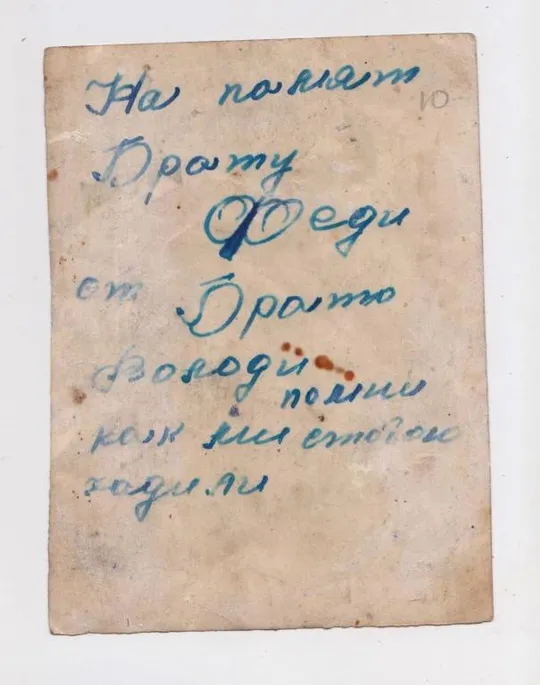 На памят
10
Брату
Феди
от Брата
Володи
помни
как ми стобою
ходили